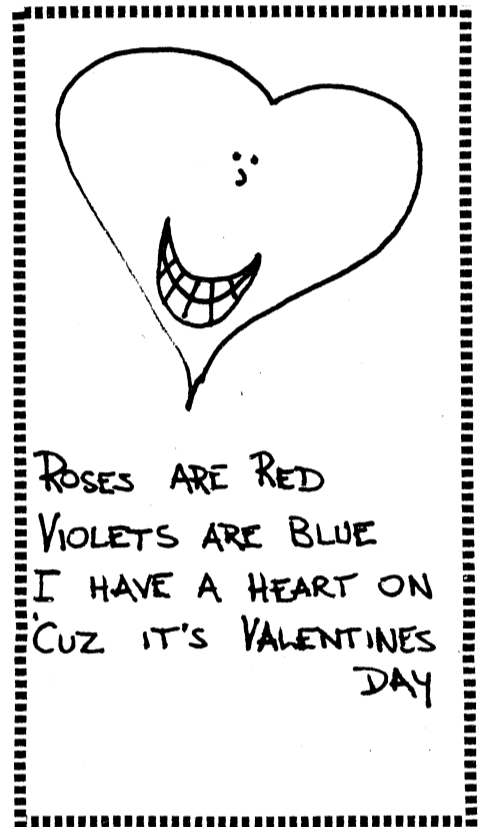 ROSES ARE RED
VIOLETS ARE BLUE
I HAVE A HEART ON
'CUZ IT'S VALENTINES
DAY